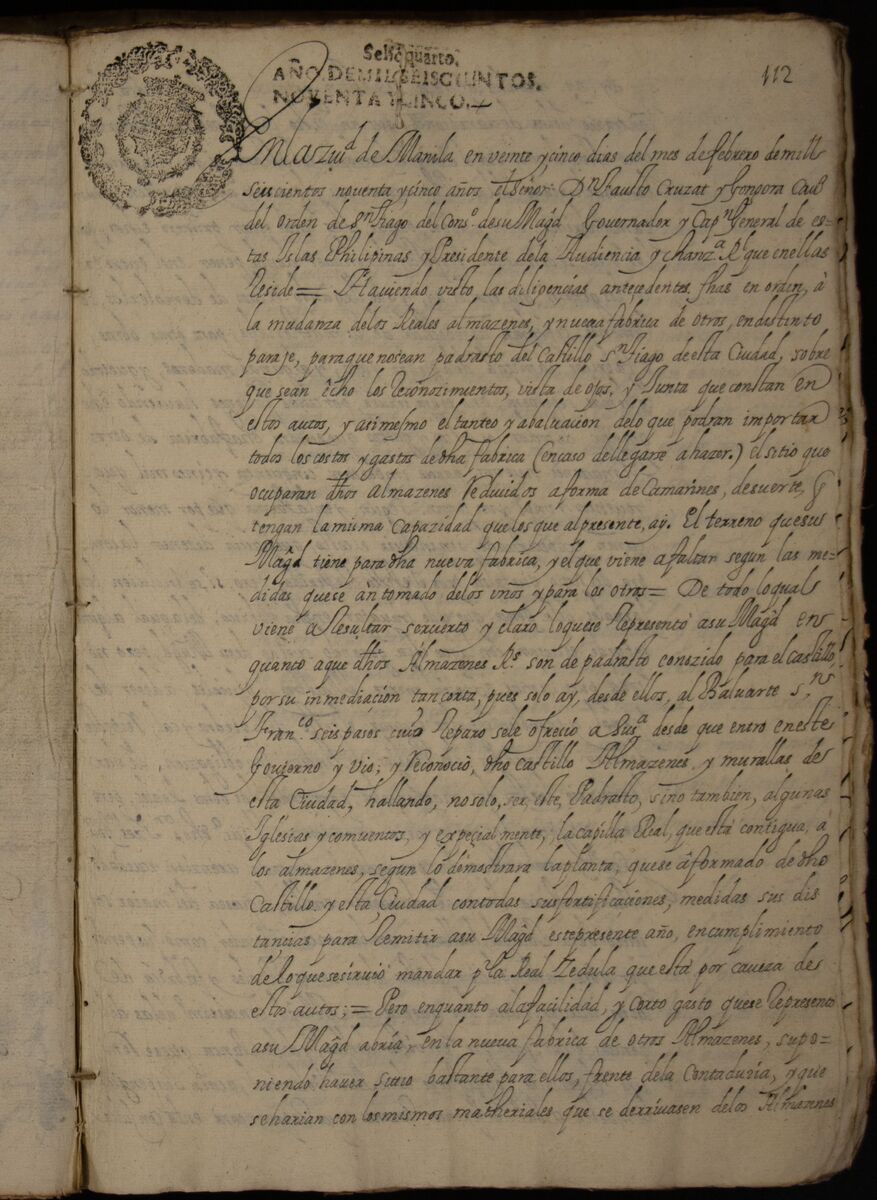 Sello quarto,
AÑO DE MIL SEISCIENTOS.
NOVENTA Y CINCO.
112
En la Ziu.d de Manila en veinte y cinco dias del mes de febrero de mill
seiscientos noventa y cinco años el Señor D.n Fausto Cruzat y Gongora Cau.o
del orden de S.n Tiago del Cons.o de su Mag.d Governador y Cap.n General de es-
tas Islas Philipinas y Presidente de la Audiencia y chanz.a R.l que en ellas
Reside = Haviendo visto, las diligencias antecedentes fhas en orden, à
la mudanza de los Reales almazenes, y nueva fabrica de otros, en distinto
paraje, para que no sean padrasto del Castillo S.n Tiago de esta Ciudad, sobre
que se àn echo los Reconozimientos, vista de ojos, y Junta que constan en
estos autos, y asimesmo el tanteo y abaluacion de lo que podran importar
todos los costos y gastos de dha fabrica (en caso de llegarse a hazer.) el sitio que
ocuparan dhos Almazenes Reduzidos a forma de Camarines, de suerte, q
tengan la misma Capazidad que los que al presente, ay. El terreno que su
Mag.d tiene para dha nueva fabrica, y el que viene a faltar segun las me-
didas que se àn tomado de los unos y para los otros = De todo lo qual
viene a Resultar ser cierto y claro lo que se Represento a su Mag.d en
quanto a que dhos Almazenes R.s son de padrasto conozido para el castillo,
por su inmediacion tan corta, pues solo ay, desde ellos, al Baluarte S.n
Fran.co seis pasos cuio Reparo se le ofrecio a su s.a desde que entro en este
Govierno y vio; y Reconocio, dho Castillo Almazenes y murallas de
esta Ciudad, hallando, no solo, ser este, Padrasto, sino tambien, algunas
Iglesias y comventos, y expecialmente, la capilla Real, que està contigua, à
los almazenes, segun lo demostrara la planta, que se à formado de dho
Castillo y esta Ciudad con todas sus fortificaciones, medidas sus dis
tancias para Remitir a su Mag.d este presente año, en cumplimiento
de lo que se sirvio mandar p.r la Real Zedula que està por caveza de
estos autos; = Pero en quanto a la facilidad, y corto gasto que se Represento
a su Mag.d abria, en la nueva fabrica de otros Almazenes, supo=
niendo haver sitio bastante para ellos, frente de la Contaduria, y que
se harian con los mismos matheriales que se derrivasen de los Almazenes